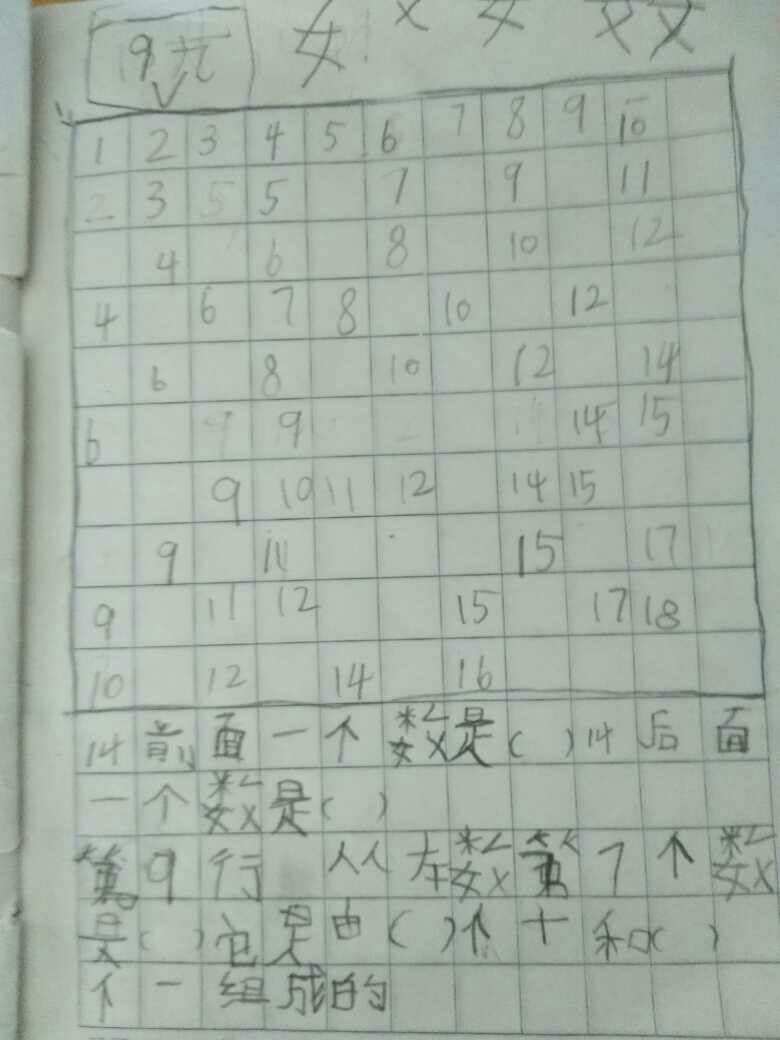 19元 女 × 女
1 2 3 4 5 6 7 8 9 10
2 3 5 5 7 9 11
4 6 8 10 12
4 6 7 8 10 12
6 8 10 12 14
6 9 9 14 15
9 10 11 12 14 15
9 11 15 17
9 11 12 15 17 18
10 12 14 16
14前面一个数是( )14后面
一个数是( )
第9行 从左数第7个数
是( )它是由( )个十和( )
个一组成的